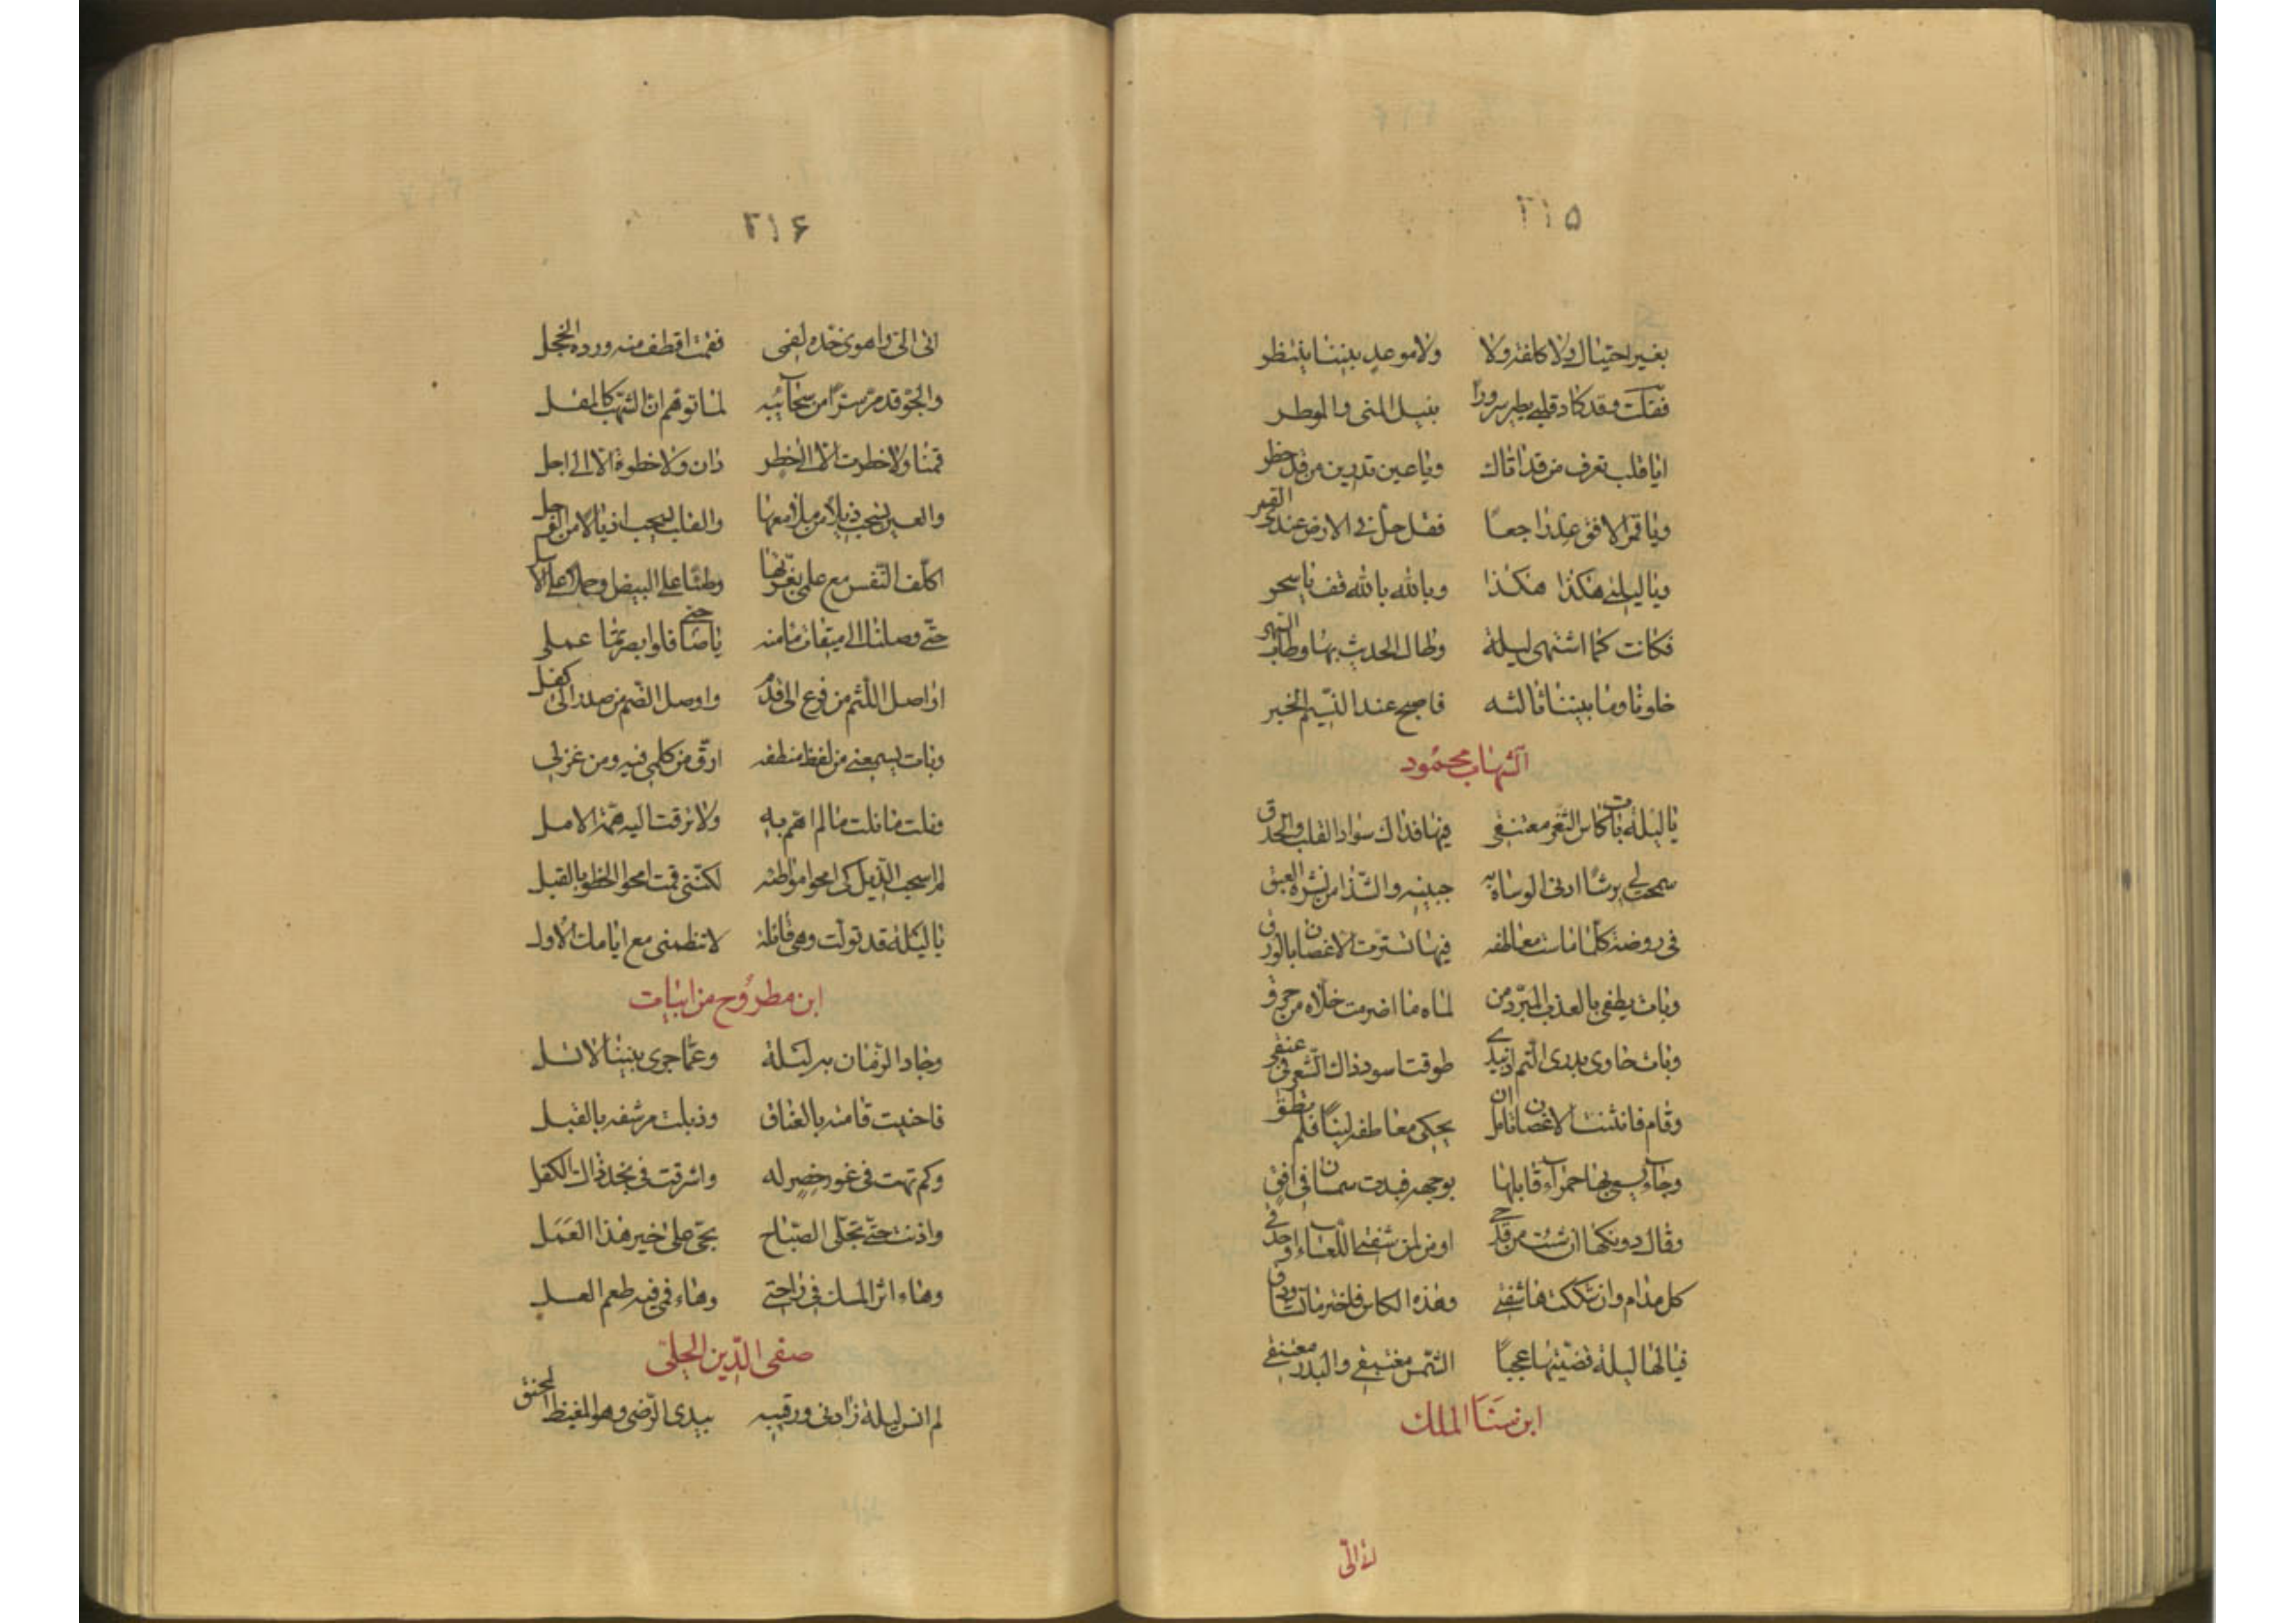 ۲۱۵
بغير احتيال ولا كلفة ولا ولا موعد بيننا ينتظر
فقلت وقد كاد قلبي يطير سرورا بنيل المنى والوطر
ايا قلب تعرف من قد اتاك ويا عين تدرين من قد حظر
ويا قمر الافق عد راجعا فقد حل في الارض عندي القمر
ويا ليلتي هكذا هكذا وبالله بالله قف يا سحر
فكانت كما اشتهى ليلة وطال الحديث بها وطاب السهر
خلونا وما بيننا ثالث فاصبح عند النسيم الخبر
الشهاب محمود
يا ليلة بات كاس الثغر معتنقي فيها فداك سواد القلب والحدق
سمحت لي برشا ادنى الوشاة به جبينه والشذا من نشره العبق
في روضة كلما ماست معاطفه فيها تسترت الاغصان بالورق
وبات يطفي بالعذب المبرد من لماه ما اضرمت خداه من حرق
وبات حاوي بدري التم اذ بيدي طوقت اسود ذاك الشعر في عنقي
وقام فانثنت الاغصان اذ مل يحكي معاطفه لينا فلم تطق
وجاء يسعى بها حمراء قابلها بوجهه فبدت شمسان في افق
وقال دونكها ان شئت من قدحي او من لمى شفتي اللعساء او حدقي
كل مدام وان شككت ها شفتي وهذه الكاس فاختر ما تشا وذق
فيا لها ليلة قضيتها عجبا الشمس مغتبقي والبدر معتنقي
ابن سنا الملك
۲۱۶
اتى الي واهوى خده لفمي فقمت اقطف منه وردة الخجل
والجو قد مر سترا من سحائبه لما توهم ان الشهب كالمقل
قمنا ولا خطرت الا الى خطر دان ولا خطوة الا الى اجل
والعين تسحب ذيلا من مدامعها والقلب يسحب اذيالا من الوجل
اكلف النفس مع علمي بغرتها وطئا على البيض وحملا على الاسل
حتى وصلنا الى ميقات مامنه يا صاحبي فلو ابصرتما عملي
اواصل اللثم من فرع الى قدم واوصل الضم من صدر الى كفل
وبات يسمعني من لفظ منطقه ارق من كلمي فيه ومن غزلي
ونلت ما نلت مما لم اهم به ولا ترقت اليه همة الامل
لم اسحب الذيل كي امحو مواطئه لكنني قمت امحو الخطو بالقبل
يا ليلة قد تولت وهي قائلة لا تنظمني مع ايامك الاول
ابن مطروح من ابيات
وجاد الزمان به ليلة وعما جرى بيننا لا تسل
فاحنيت قامته بالعناق وذبلت مرشفه بالقبل
وكم تهت في غور خصر له واشرقت في نجد ذاك الكفل
واذنت حتى تجلى الصباح بحي على خير هذا العمل
وهاء اثر المسك في راحتي وهاء في فيه طعم العسل
صفي الدين الحلي
لم انس ليلة زارني ورقيبه يبدي الرضى وهو المغيظ المحنق